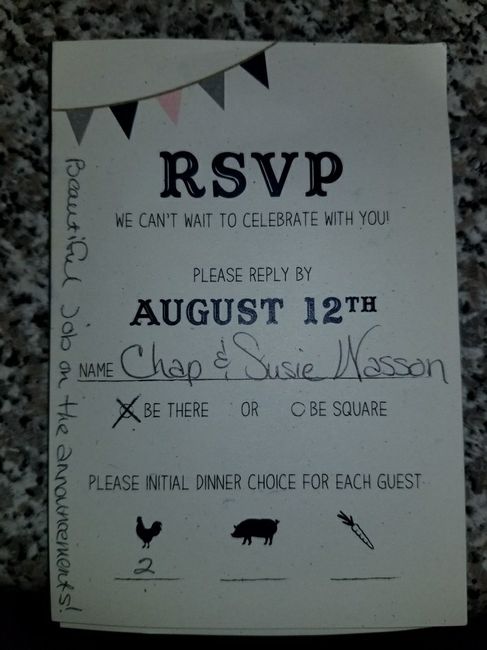 RSVP
WE CAN'T WAIT TO CELEBRATE WITH YOU!
PLEASE REPLY BY
AUGUST 12TH
NAME Chap & Susie Wasson
X BE THERE OR O BE SQUARE
PLEASE INITIAL DINNER CHOICE FOR EACH GUEST
2
Beautiful job on the announcements!